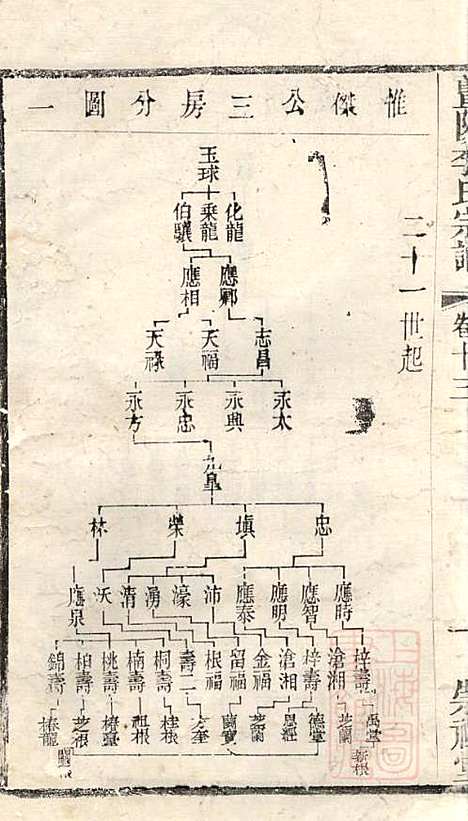 惟傑公三房分圖一
二十一世起
玉球
化龍 乘龍 伯驥
應鄉 應相
志昌 天福 天祿
永太 永興 永忠 永方
九皐
忠 塡 榮 林
應時 應智 應明 應泰 沛 濠 湧 清 沃 應泉
梓壽 滄湘 梓壽 滄湘 金福 留福 根福 壽二 桐壽 楠壽 桃壽 柏壽 錦壽
禹堂 芝蘭 德堂 恩經 芝蘭 蘭寶 文奎 桂根 祖根 椿臺 芝根 椿龍
新根
李氏宗譜
卷十三
一